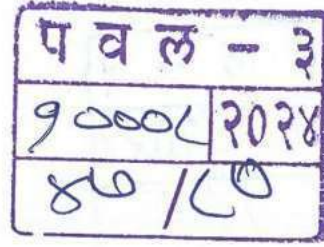 प व ल - ३
१०००८ २०२४
४७/८०